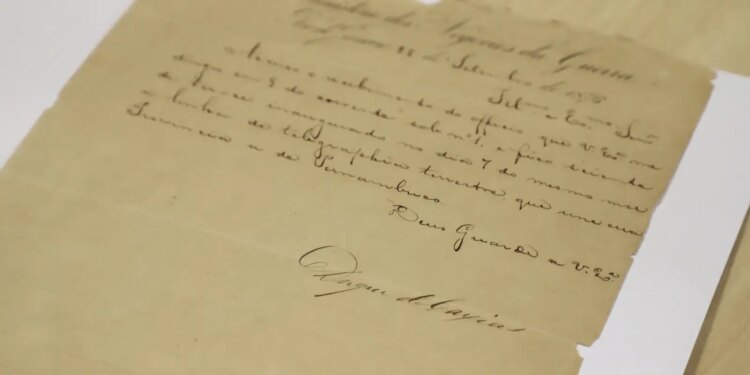 Negocios da Guerra
de Setembro de
Illmo. e Exmo. Senr.
o recebimento do officio que V. Exa. me
em 9 do corrente sob no. 1, e fico sciente
de haver inaugurado no dia 7 do mesmo mez
a linha de telegraphia terrestre que une essa
Provincia a de Pernambuco.
Deus Guarde a V. Exa.
Duque de Caxias